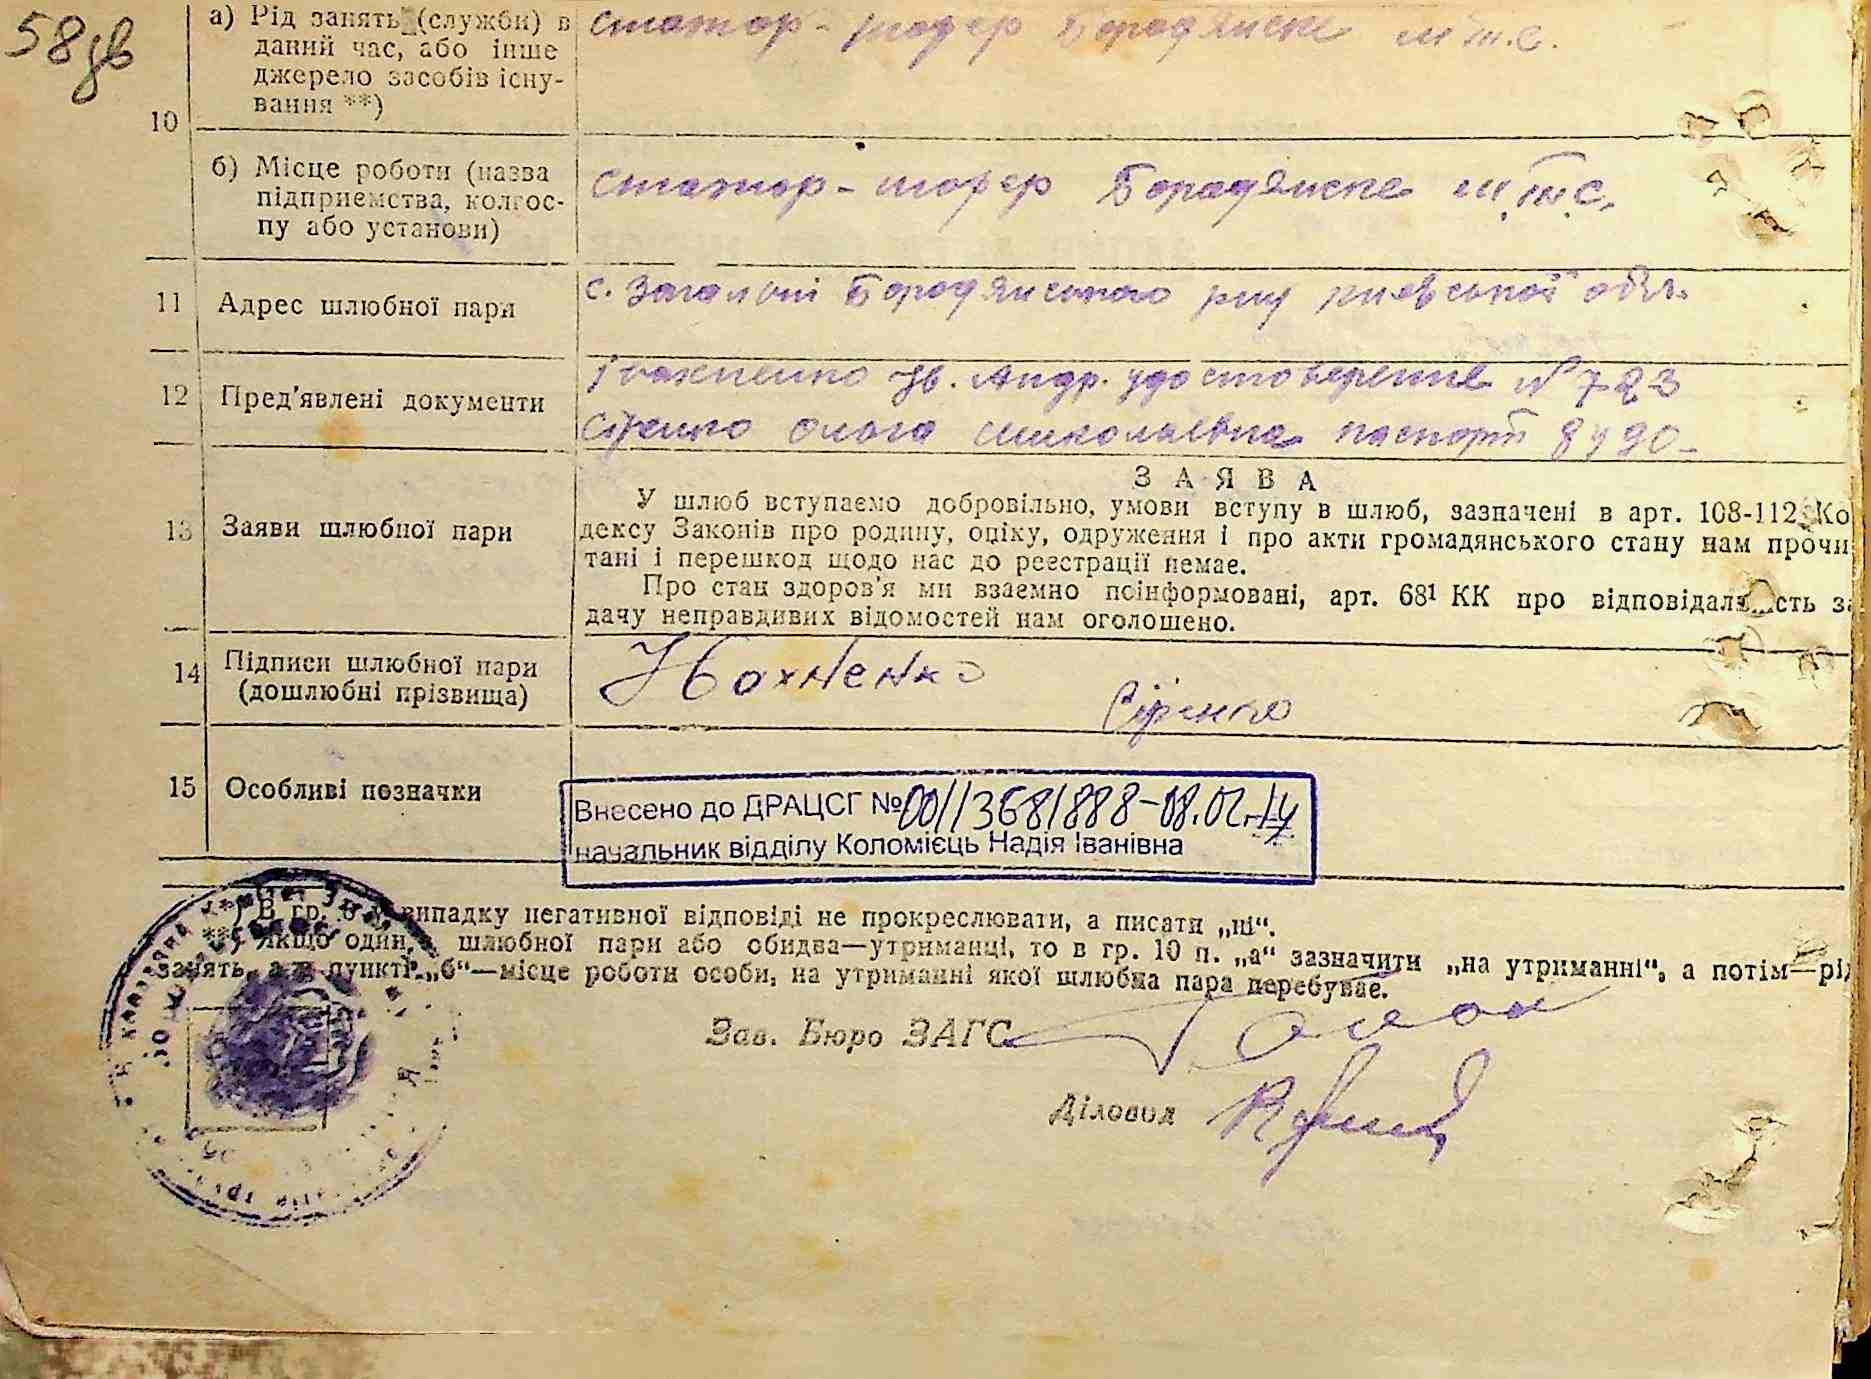 58зв
а) Рід занять (служби) в
даний час, або інше
джерело засобів існу-
вання **)
10
б) Місце роботи (назва
підприємства, колгос-
пу або установи)
11 Адрес шлюбної пари
Бородянського р-ну київської обл.
12 Пред'явлені документи
Андр. удостоверение № 723
Сіренко Ольга Миколаївна паспорт
13 Заяви шлюбної пари
ЗАЯВА
У шлюб вступаємо добровільно, умови вступу в шлюб, зазначені в арт. 108-112 Ко
дексу Законів про родину, опіку, одруження і про акти громадянського стану нам прочи
тані і перешкод щодо нас до реєстрації немає.
Про стан здоров'я ми взаємно поінформовані, арт. 68¹ КК про відповідальність за
дачу неправдивих відомостей нам оголошено.
14 Підписи шлюбної пари
(дошлюбні прізвища)
Івахненко
Сіренко
15 Особливі позначки
Внесено до ДРАЦСГ № 00113681888-08.02.14
начальник відділу Коломієць Надія Іванівна
В гр. 6 у випадку негативної відповіді не прокреслювати, а писати „ні“.
**) Якщо один з шлюбної пари або обидва—утриманці, то в гр. 10 п. „а“ зазначити „на утриманні“, а потім—рід
занять, а в пункті „б“—місце роботи особи, на утриманні якої шлюбна пара перебуває.
Зав. Бюро ЗАГС
Діловод